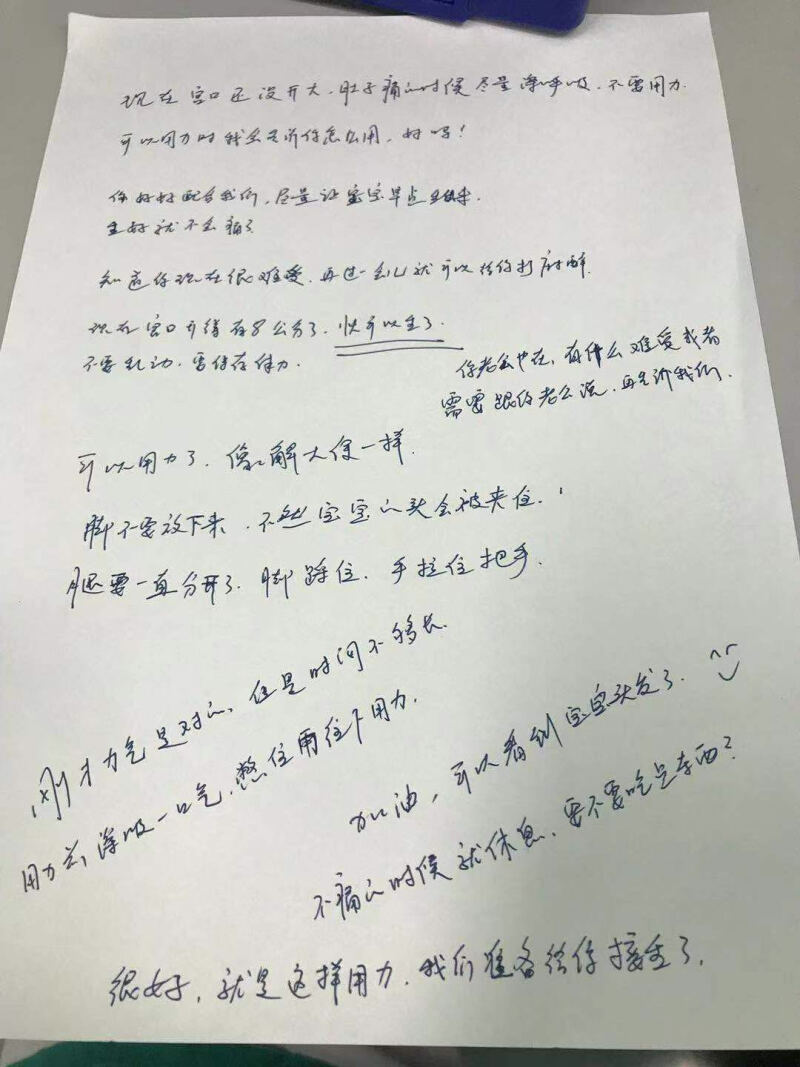 现在宫口还没开大，肚子痛的时候尽量深呼吸，不要用力
可以用力时我会告诉你怎么用，好吗！
你好好配合我们，尽量让宝宝早点出来
生好就不会痛了
知道你现在很难受，再过一会儿就可以给你打麻醉
现在宫口开得有8公分了，快可以生了.
不要乱动，需保存体力.
你老公也在，有什么难受或者
需要跟你老公说，再告诉我们.
可以用力了，像解大便一样.
脚不要放下来，不然宝宝的头会被夹住.
腿要一直分开了，脚踩住，手拉住把手.
刚才力气是对的，但是时间不够长
用力前，深吸一口气，憋住再往下用力.
加油，可以看到宝宝头发了.
不痛的时候就休息，要不要吃点东西？
很好，就是这样用力，我们准备给你接生了.